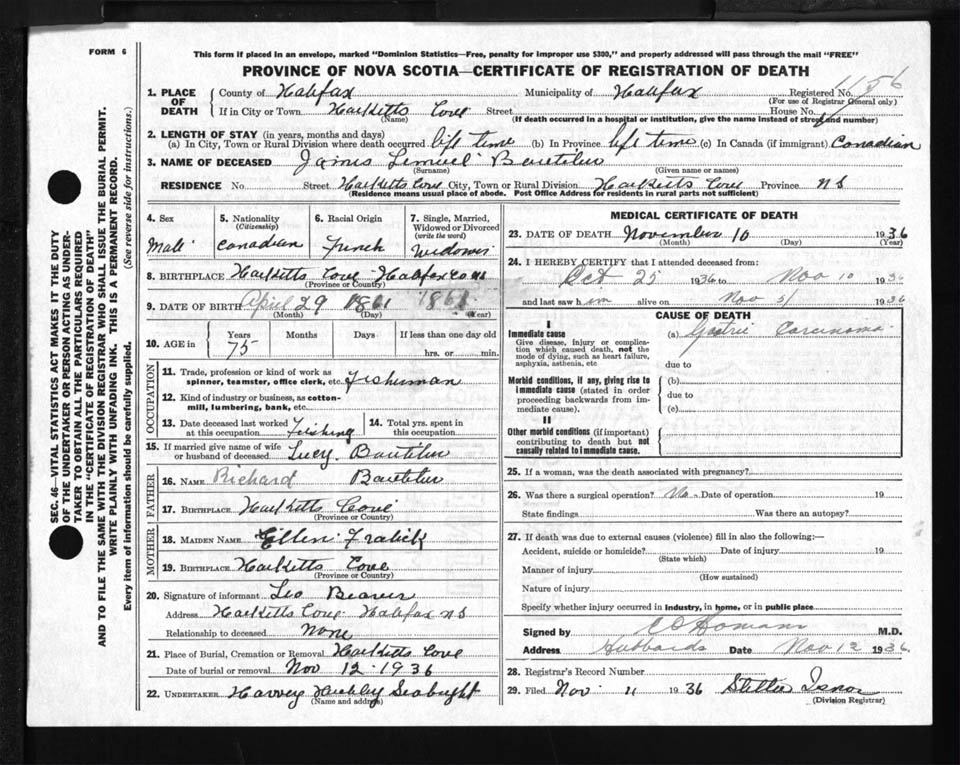 FORM 6
This form if placed in an envelope, marked "Dominion Statistics—Free, penalty for improper use $300," and properly addressed will pass through the mail "FREE"
PROVINCE OF NOVA SCOTIA—CERTIFICATE OF REGISTRATION OF DEATH
1. PLACE OF DEATH
County of Halifax Municipality of Halifax Registered No. 1156
(For use of Registrar General only)
If in City or Town Hacketts Cove Street House No.
(Name) (If death occurred in a hospital or institution, give the name instead of street and number)
2. LENGTH OF STAY (in years, months and days)
(a) In City, Town or Rural Division where death occurred life time (b) In Province life time (c) In Canada (if immigrant) Canadian
3. NAME OF DECEASED James Lemuel Boutilier
(Surname) (Given name or names)
RESIDENCE No. Street Hacketts Cove City, Town or Rural Division Hacketts Cove Province NS
(Residence means usual place of abode. Post Office Address for residents in rural parts not sufficient)
4. Sex Male
5. Nationality (Citizenship) Canadian
6. Racial Origin French
7. Single, Married, Widowed or Divorced (write the word) Widower
8. BIRTHPLACE Hacketts Cove Halifax Co NS
(Province or Country)
9. DATE OF BIRTH April 29 1861 1861
(Month) (Day) (Year)
10. AGE in Years 75 Months Days If less than one day old
hrs. or min.
OCCUPATION
11. Trade, profession or kind of work as spinner, teamster, office clerk, etc. Fisherman
12. Kind of industry or business, as cotton-mill, lumbering, bank, etc.
13. Date deceased last worked at this occupation Fishing
14. Total yrs. spent in this occupation
15. If married give name of wife or husband of deceased Lucy Boutilier
FATHER
16. NAME Richard Boutilier
17. BIRTHPLACE Hacketts Cove
(Province or Country)
MOTHER
18. MAIDEN NAME Ellen Fralick
19. BIRTHPLACE Hacketts Cove
(Province or Country)
20. Signature of informant Leo Beaver
Address Hacketts Cove Halifax NS
Relationship to deceased None
21. Place of Burial, Cremation or Removal Hacketts Cove
Date of burial or removal Nov 12 - 1936
22. UNDERTAKER Harvey Seabright
(Name and address)
MEDICAL CERTIFICATE OF DEATH
23. DATE OF DEATH November 10 1936
(Month) (Day) (Year)
24. I HEREBY CERTIFY that I attended deceased from:
Oct 25 1936 to Nov 10 1936
and last saw him alive on Nov 5/ 1936
CAUSE OF DEATH
I
Immediate cause
Give disease, injury or complication which caused death, not the mode of dying, such as heart failure, asphyxia, asthenia, etc
(a) Gastric Carcinoma
due to
Morbid conditions, if any, giving rise to immediate cause (stated in order proceeding backwards from immediate cause).
(b)
due to
(c)
II
Other morbid conditions (if important) contributing to death but not causally related to immediate cause.
25. If a woman, was the death associated with pregnancy?
26. Was there a surgical operation? No Date of operation 19
State findings Was there an autopsy?
27. If death was due to external causes (violence) fill in also the following:—
Accident, suicide or homicide? Date of injury 19
(State which)
Manner of injury
(How sustained)
Nature of injury
Specify whether injury occurred in industry, in home, or in public place
Signed by M.D.
Address Hubbards Date Nov 12 1936.
28. Registrar's Record Number
29. Filed Nov 11 1936
(Division Registrar)
SEC. 46—VITAL STATISTICS ACT MAKES IT THE DUTY
OF THE UNDERTAKER OR PERSON ACTING AS UNDER-
TAKER TO OBTAIN ALL THE PARTICULARS REQUIRED
IN THE "CERTIFICATE OF REGISTRATION OF DEATH"
AND TO FILE THE SAME WITH THE DIVISION REGISTRAR WHO SHALL ISSUE THE BURIAL PERMIT.
WRITE PLAINLY WITH UNFADING INK. THIS IS A PERMANENT RECORD.
Every item of information should be carefully supplied. (See reverse side for instructions.)